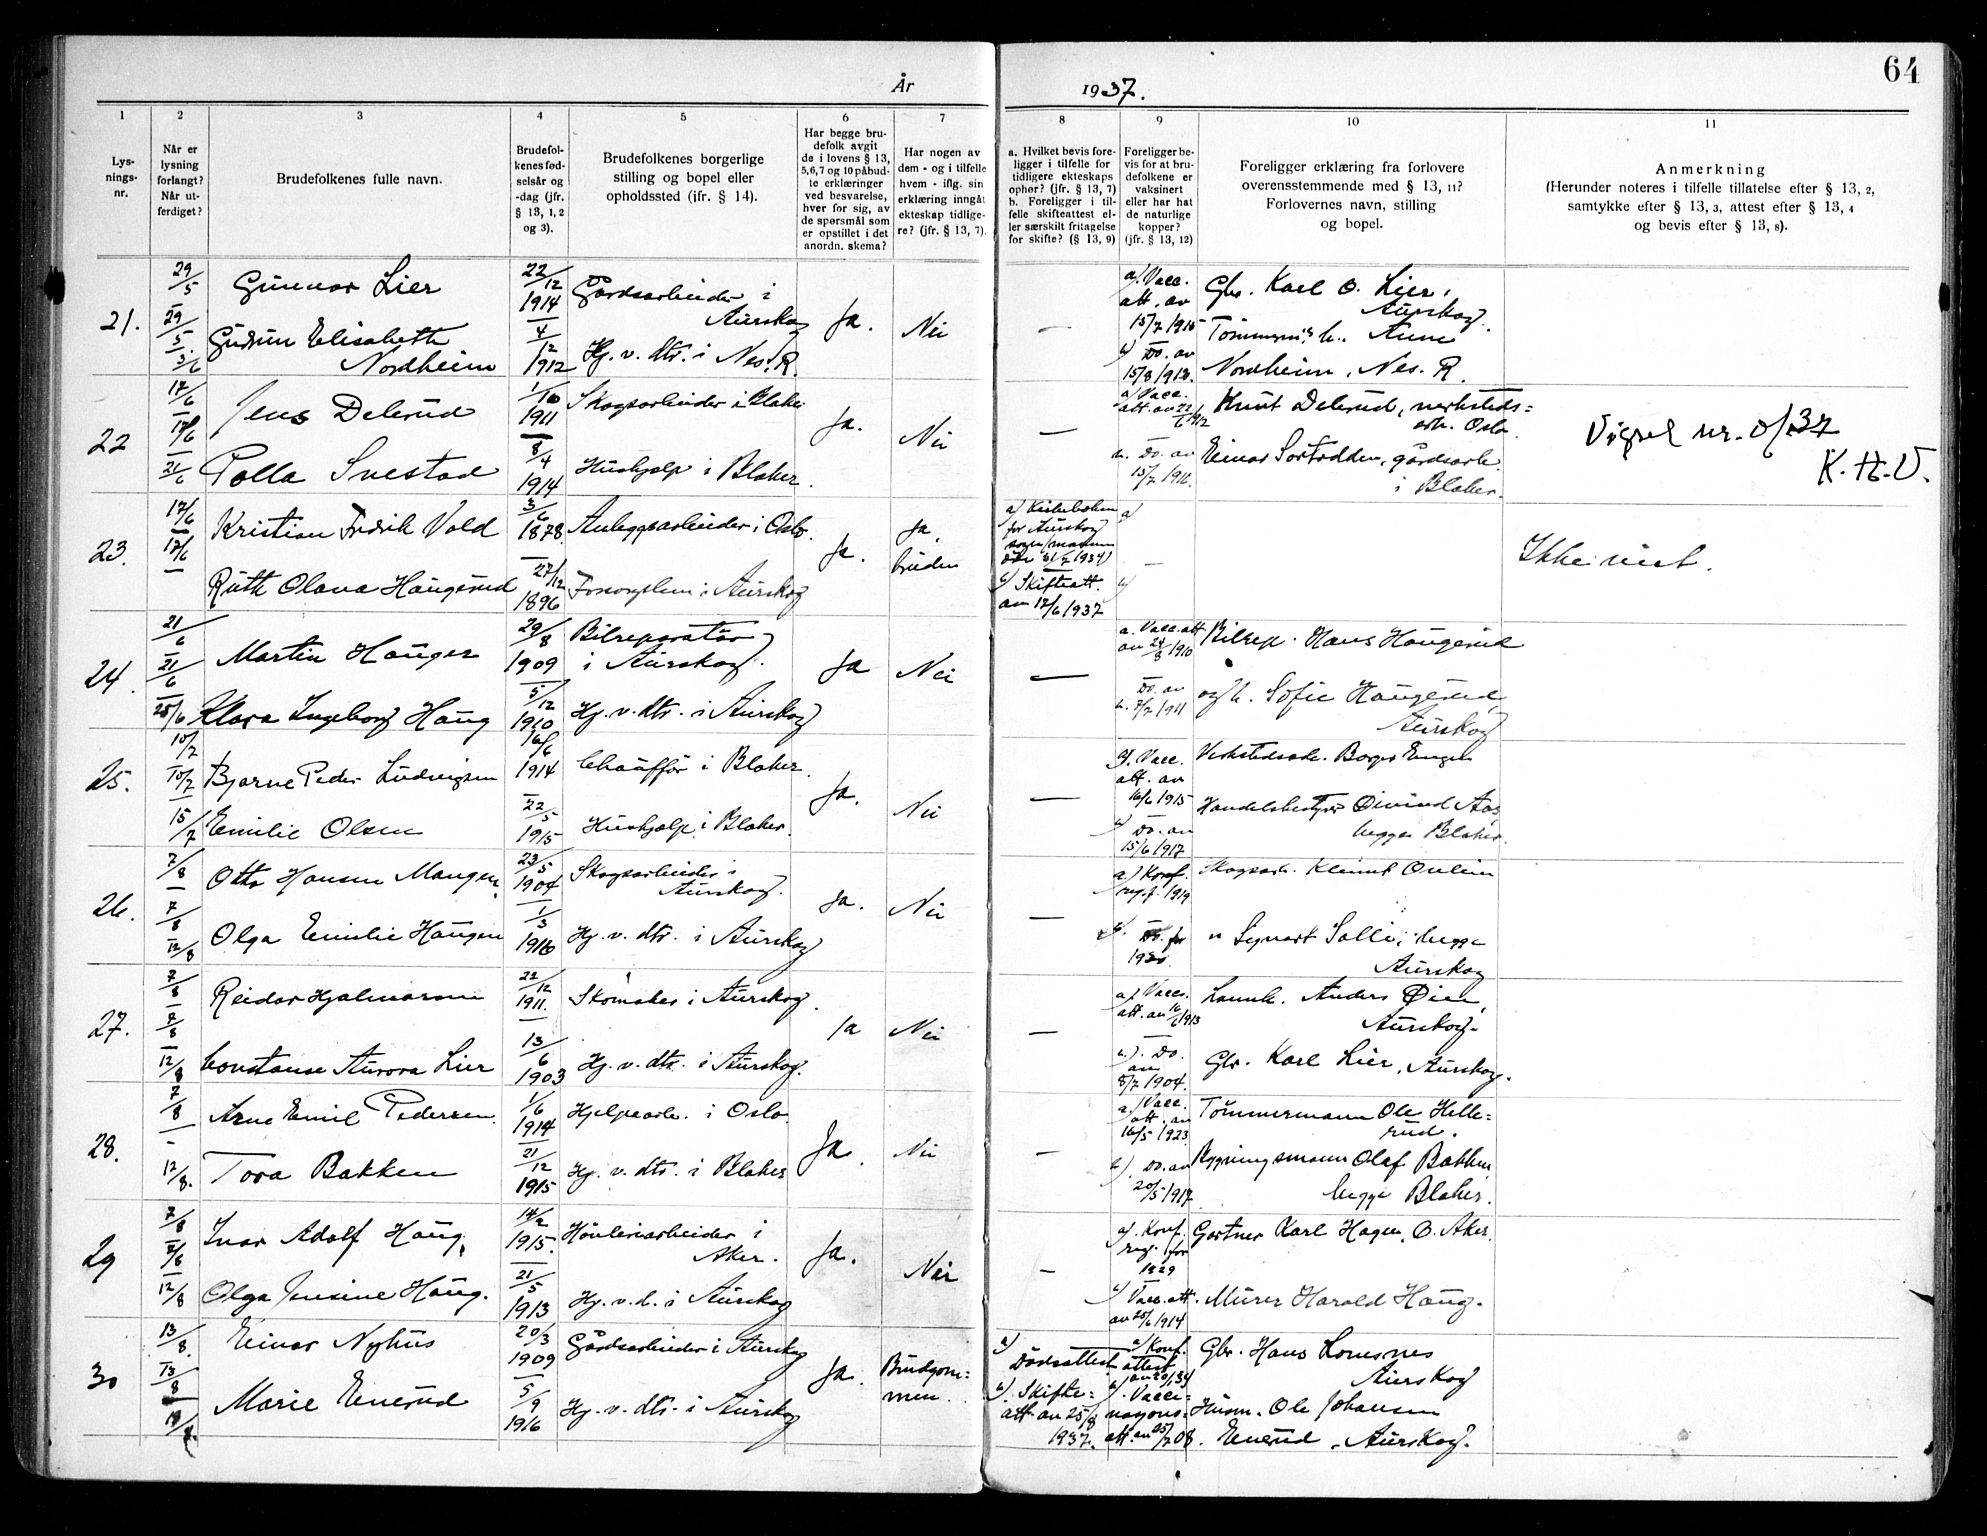 64
År
1937.
1
2
3
4
5
6
7
8
9
10
11
Lys-
nings-
nr.
Når er
lysning
forlangt?
Når ut-
ferdiget?
Brudefolkenes fulle navn.
Brudefol-
kenes fød-
selsår og
-dag (jfr.
§ 13, 1, 2
og 3).
Brudefolkenes borgerlige
stilling og bopel eller
opholdssted (jfr. § 14).
Har begge bru-
defolk avgit
de i lovens § 13,
5,6,7 og 10 påbud-
te erklæringer
ved besvarelse,
hver for sig, av
de spørsmål som
er opstillet i det
anordn. skema?
Har nogen av
dem - og i tilfelle
hvem - iflg. sin
erklæring inngåt
ekteskap tidlige-
re? (jfr. § 13, 7).
a. Hvilket bevis fore-
ligger i tilfelle for
tidligere ekteskaps
ophør? (jfr. § 13, 7)
b. Foreligger i til-
felle skifteattest el-
ler særskilt fritagelse
for skifte? (§ 13, 9)
Foreligger be-
vis for at bru-
defolkene er
vaksinert
eller har hat
de naturlige
kopper?
(jfr. § 13, 12)
Foreligger erklæring fra forlovere
overensstemmende med § 13, 11?
Forlovernes navn, stilling
og bopel.
Anmerkning
(Herunder noteres i tilfelle tillatelse efter § 13, 2,
samtykke efter § 13, 3, attest efter § 13, 4
og bevis efter § 13, 8).
21.
29/5
29/5
3/6
Gunnar Lier
Gudrun Elisabeth
Nordheim
22/12
1914
4/12
1912
Gårdsarbeider i
Aurskog
Hj. v. dtr. i Nes. R.
Ja.
Nei
—
a/ Vacc.
att. av
15/7 1915
b) Do. av
15/8 1913.
Gbr. Karl O. Lier,
Aurskog.
Anne
Nordheim, Nes. R.
22
17/6
17/6
21/6
Jens Delerud
Palla Svestad
1/10
1911
8/4
1914
Skogsarbeider i Blaker
Hushjelp i Blaker.
Ja.
Nei
—
a) Vacc.
att. av 22/6 1912
b. Do. av
15/7 1916.
Knut Delerud, verksteds=
arb. Oslo.
Einar Sortodden, gårdsarb.
i Blaker.
Vigsel nr. 8/37
K. H. V.
23.
17/6
17/6
—
Kristian Fredrik Vold
Ruth Olava Haugerud
3/6
1878.
27/12
1896
Anleggsarbeider i Oslo.
i Aurskog
Ja.
Ja,
bruden
a) Kirkeboken
for Aurskog
sogn (mannen
døde 31/5 1934)
b) Skifteatt.
av 17/6 1937
a)
—
b)
Ikke viet.
24.
21/6
21/6
25/6
Martin Hauger
Klara Ingeborg Haug
29/8
1909
5/12
1910
Bilreparatør
i Aurskog.
Hj. v. dtr. i Aurskog
Ja
Nei
—
a. Vacc. att
av 24/8 1910
b. Do. av
7/7 1911
Bilrep. Hans Haugerud
og h. Sofie Haugerud,
Aurskog
25.
10/7
10/7
15/7
Bjarne Peder Ludvigsen
Emilie Olsen
16/6
1914
22/5
1915
Chauffør i Blaker.
Hushjelp i Blaker.
Ja.
Nei
—
a). Vacc.
att. av
16/6 1915
b) Do. av
15/6 1917
Verkstedsarb. Borger Engen
Handelsbestyrer Øivind Aas,
begge Blaker.
26.
7/8
7/8
12/8
Otto Hansen Mangen,
Olga Emilie Haugen
23/5
1904
1/3
1916
Skogsarbeider i
Aurskog.
Hj. v. dtr. i Aurskog
Ja.
Nei
—
a.) Konf.
reg. f. 1919
b. Do. for
Skogsarb. Klemet Onlien
" Sigvart Solli, begge
Aurskog
27.
7/8
7/8
12/8
Reidar Hjalmarsen
Constanse Aurora Lier
22/12
1911.
13/6
1903
Skomaker i Aurskog.
Hj. v. dtr. i Aurskog.
Ja
Nei
—
a) Vacc.
att. av 16/6 1913
b.). Do.
av
8/7 1904.
Anders Øien,
Aurskog.
Gbr. Karl Lier, Aurskog.
28.
7/8
-
12/8.
Arne Emil Pedersen.
Tora Bakken
1/6
1914
21/12
1915
Hjelpearb. i Oslo.
Hj. v. dtr. i Blaker
Ja.
Nei
—
a.) Vacc.
att. av
16/5 1923
b). Do. av
20/5 1917
Tømmermann Ole Helle=
rud.
Bygningsmann Olaf Bakken,
begge Blaker.
29
7/8
7/8
12/8
Ivar Adolf Haug,
Olga Jensine Haug.
14/2
1915.
21/5
1913
Høvleriarbeider i
Aker.
Hj. v. d. i Aurskog
Ja.
Nei
—
a). Konf.
reg. for
1929
b) Vacc. att.
av 25/6 1914
Gartner Karl Hagen, Ø. Aker.
Murer Harald Haug.
30
13/8.
13/8
Einar Nyhus
Marie Enerud
20/3
1909
5/9
1916
Gårdsarbeider i Aurskog
Hj. v. dtr. i Aurskog
Ja.
Brudgom=
men.
a)
Dødsattest
b). Skifte=
att. av 25/8
1937.
a) Konf.
attest
b). Vacci=
nasjons-
att. av 25/7 08.
Gbr. Hans Lonesnes
Aurskog
Husm. Ole Johansen
Enerud, Aurskog.